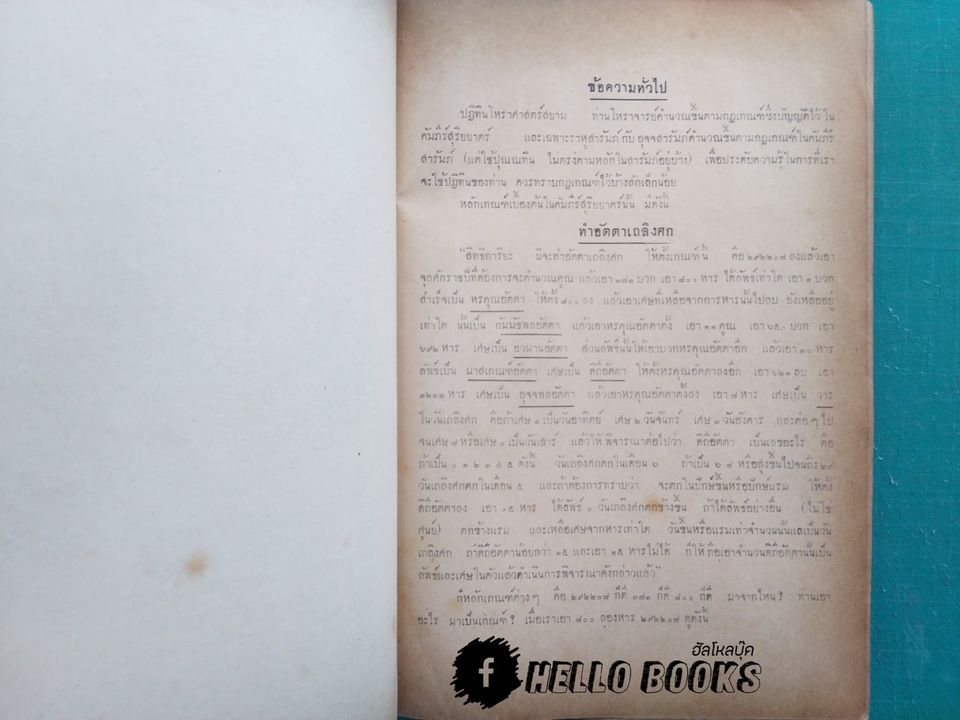 ข้อความทั่วไป
ปฏิทินโหราศาสตร์สยาม ท่านโหราจารย์คำนวณขึ้นตามกฎเกณฑ์ซึ่งบัญญัติไว้ใน
คัมภีร์สุริยยาตร์ และเฉพาะราหูสารัมภ์ กับ อุจจสารัมภ์คำนวณขึ้นตามกฎเกณฑ์ในคัมภีร์
สารัมภ์ (แต่ใช้ปุณณทิน ไม่ตรงตามหลักในสารัมภ์อยู่บ้าง) เพื่อประดับความรู้ในการที่เรา
จะใช้ปฏิทินของท่าน ควรทราบกฎเกณฑ์ไว้บ้างสักเล็กน้อย
หลักเกณฑ์เบื้องต้นในคัมภีร์สุริยยาตร์นั้น มีดังนี้
ทำอัตตาเถลิงศก
"สิทธิการิยะ ผิจะทำอัตตาเถลิงศก ให้ตั้งเกณฑ์นี้ คือ ๒๙๒๒๐๗ ลงแล้วเอา
จุลศักราชปีที่ต้องการจะคำนวณคูณ แล้วเอา ๓๗๓ บวก เอา ๘๐๐ หาร ได้ลัพธ์เท่าใด เอา ๑ บวก
สำเร็จเป็น หรคุณอัตตา ให้ตั้ง ๘๐๐ ลง แล้วเอาเศษที่เหลือจากการหารนั้นไปลบ ยังเหลืออยู่
เท่าใด นั้นเป็น กัมมัชพลอัตตา แล้วเอาหรคุณอัตตาตั้ง เอา ๑๑ คูณ เอา ๖๕๐ บวก เอา
๖๙๒ หาร เศษเป็น อวมานอัตตา ส่วนลัพธ์นั้นให้เอาบวกหรคุณอัตตาอีก แล้วเอา ๓๐ หาร
ลัพธ์เป็น มาสเกณฑ์อัตตา เศษเป็น ดิถีอัตตา ให้ตั้งหรคุณอัตตาลงอีก เอา ๖๒๑ ลบ เอา
๓๒๓๒ หาร เศษเป็น อุจจพลอัตตา แล้วเอาหรคุณอัตตาตั้งลง เอา ๗ หาร เศษเป็น วาร
ในวันเถลิงศก คือถ้าเศษ ๑ เป็นวันอาทิตย์ เศษ ๒ วันจันทร์ เศษ ๓ วันอังคาร และต่อๆ ไป
จนเศษ ๗ หรือเศษ ๐ เป็นวันเสาร์ แล้วให้พิจารณาต่อไปว่า ดิถีอัตตา เป็นเลขอะไร คือ
ถ้าเป็น ๐ ๑ ๒ ๓ ๔ ๕ ดังนี้ วันเถลิงศกตกในเดือน ๖ ถ้าเป็น ๖ ๗ หรือสูงขึ้นไปจนถึง ๒๙
วันเถลิงศกตกในเดือน ๕ และถ้าต้องการทราบว่า จะตกในปักษ์ขึ้นหรือปักษ์แรม ให้ตั้ง
ดิถีอัตตาลง เอา ๑๕ หาร ได้ลัพธ์ ๐ วันเถลิงศกตกข้างขึ้น ถ้าได้ลัพธ์อย่างอื่น (ไม่ใช่
ศูนย์) ตกข้างแรม และเหลือเศษจากหารเท่าใด วันขึ้นหรือแรมเท่าจำนวนนั้นแลเป็นวัน
เถลิงศก ถ้าดิถีอัตตาน้อยกว่า ๑๕ และเอา ๑๕ หารไม่ได้ ก็ให้ถือเอาจำนวนดิถีอัตตานั้นเป็น
ลัพธ์และเศษในตัวแล้วดำเนินการพิจารณาดังกล่าวแล้ว"
ก็หลักเกณฑ์ต่างๆ คือ ๒๙๒๒๐๗ ก็ดี ๓๗๓ ก็ดี ๘๐๐ ก็ดี มาจากไหน? ท่านเอา
อะไร มาเป็นเกณฑ์? เมื่อเราเอา ๘๐๐ ลองหาร ๒๙๒๒๐๗ ดูดังนี้
ฮัลโหลบุ๊ค
f HELLO BOOKS